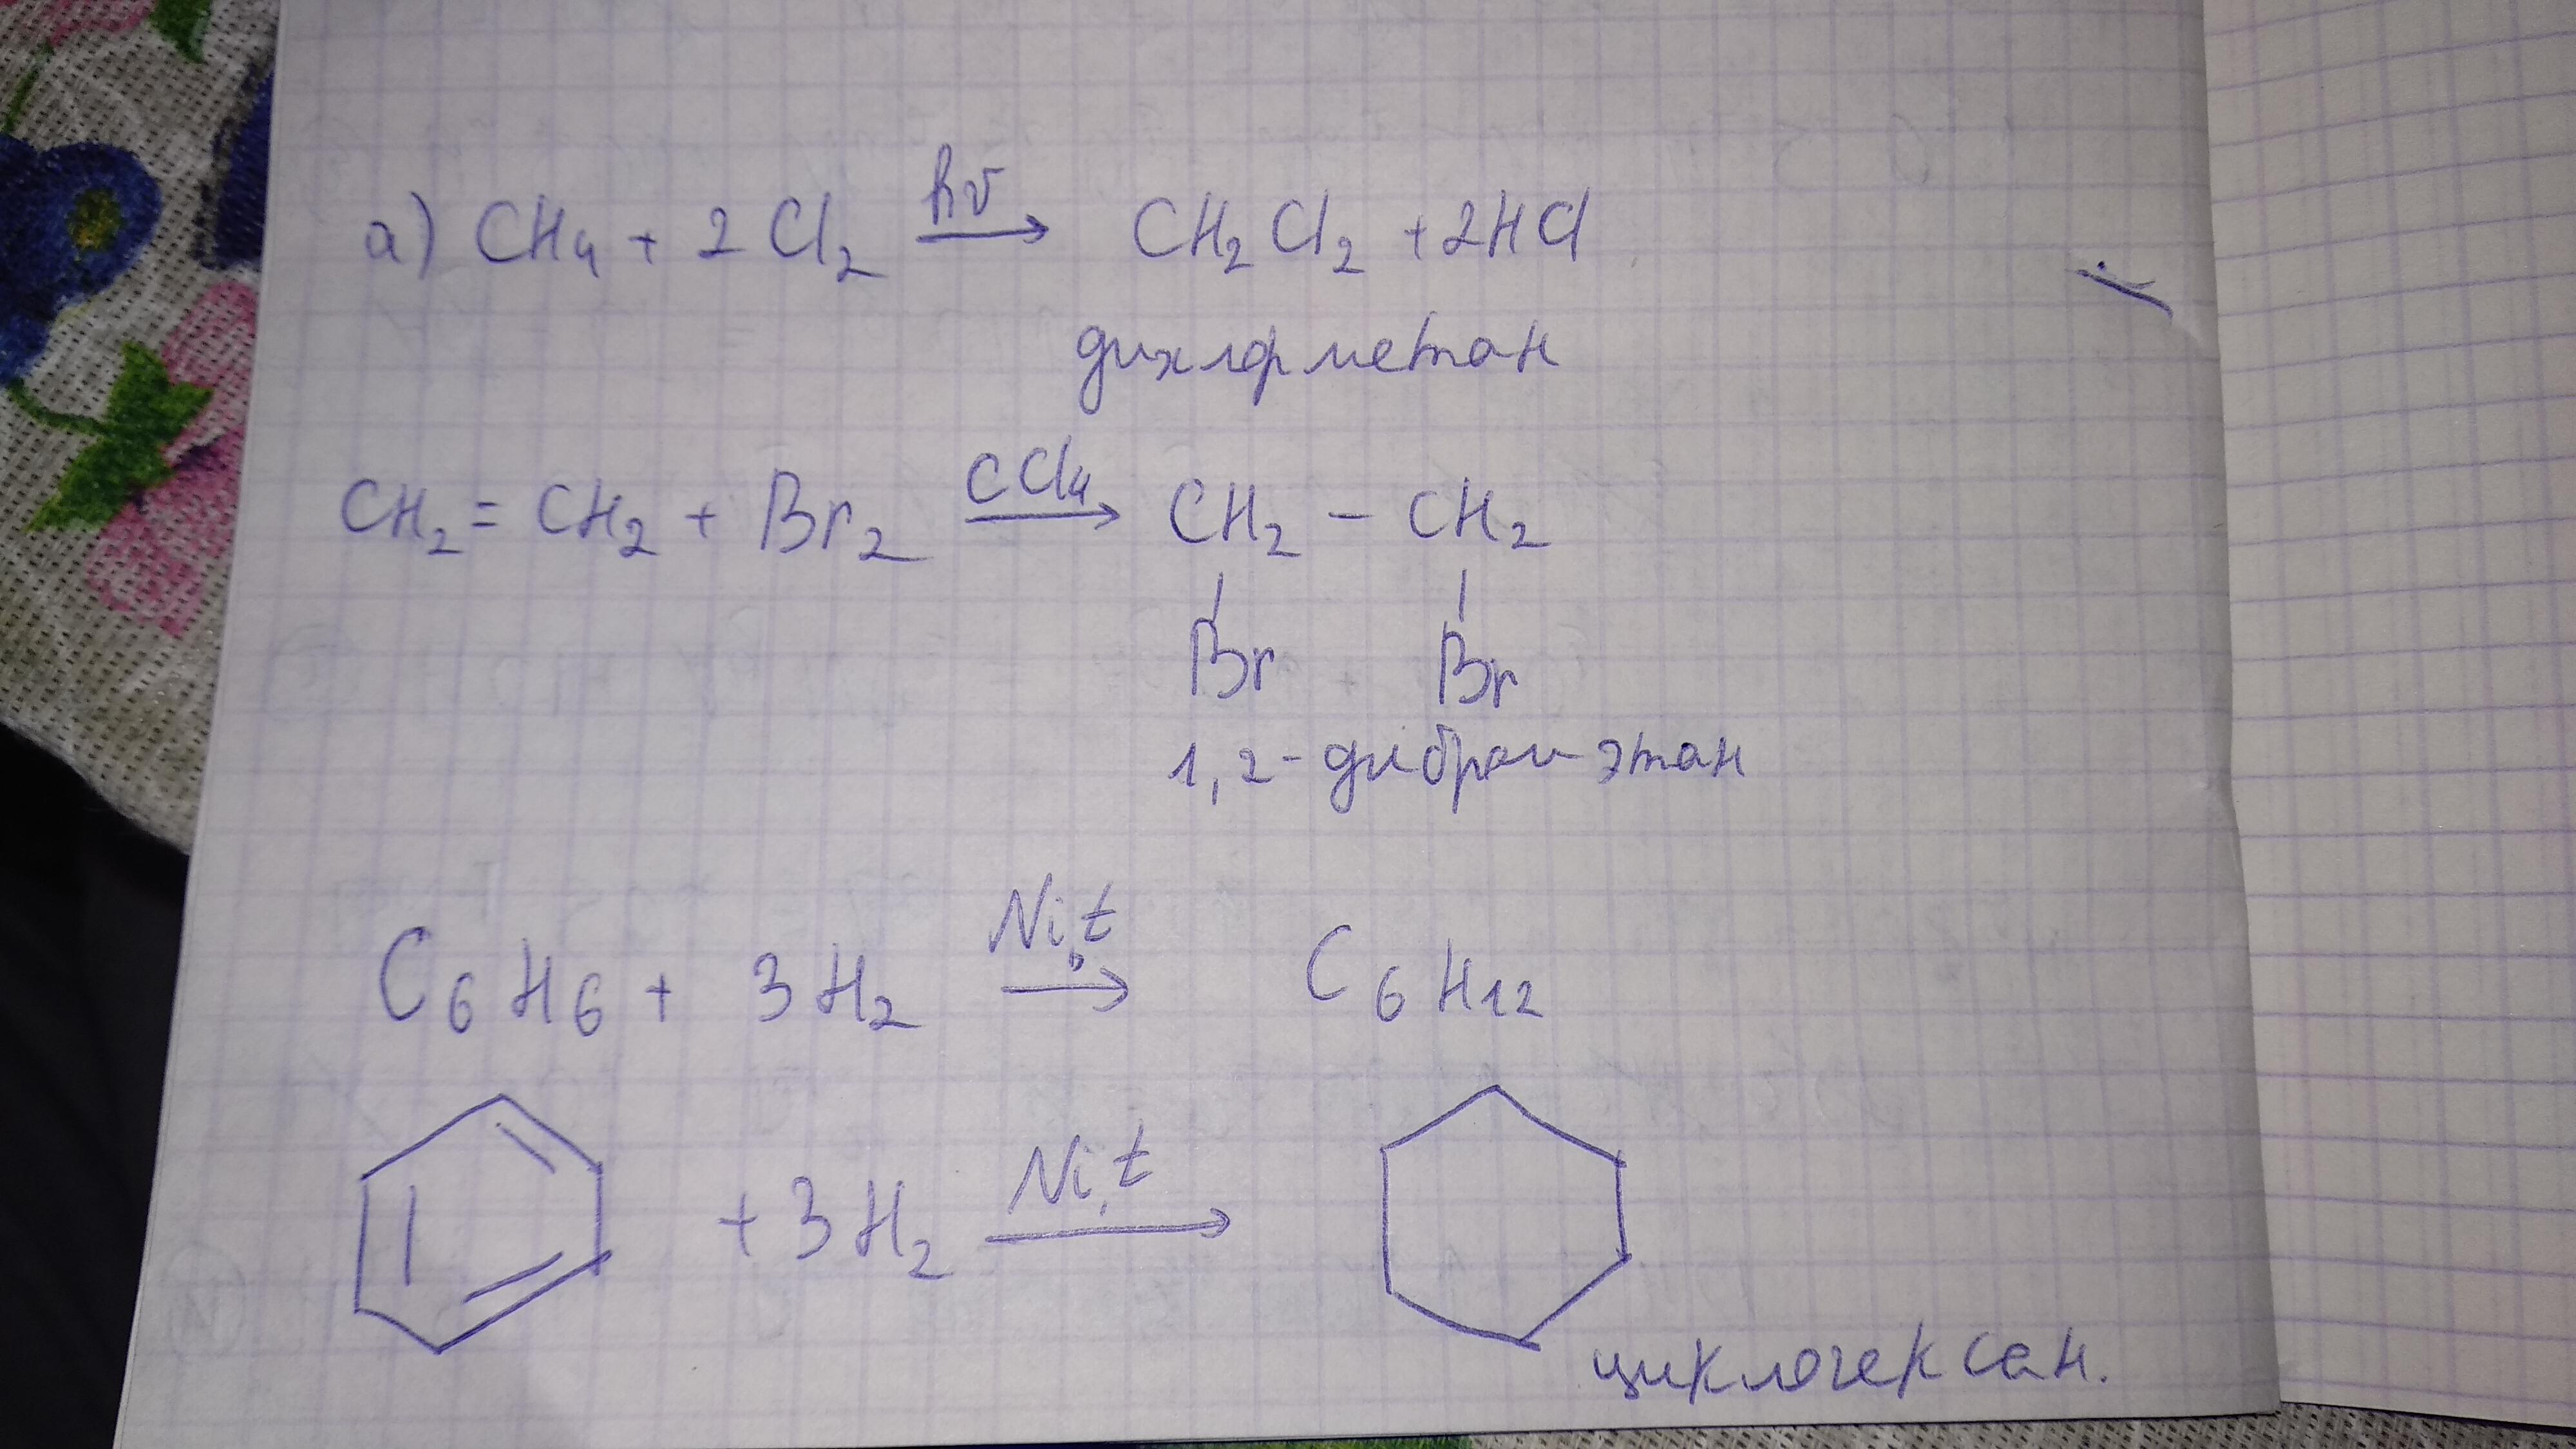 а) CH₄ + 2Cl₂ —hν→ CH₂Cl₂ + 2HCl
дихлорметан
CH₂ = CH₂ + Br₂ —CCl₄→ CH₂ – CH₂
Br Br
1,2-дибромэтан
C₆H₆ + 3H₂ —Ni,t→ C₆H₁₂
+ 3H₂ —Ni,t→
циклогексан.